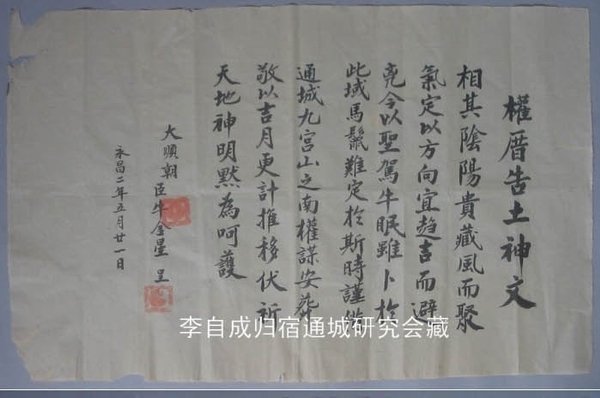 權厝告土神文
相其陰陽貴藏風而聚
氣定以方向宜趨吉而避
兇今以聖駕牛眠雖卜於
此域馬鬣難定於斯時謹
通城九宮山之南權謀安葬
敬以吉月更計推移伏祈
天地神明默為呵護
大順朝 臣牛金星 呈
永昌二年五月廿一日
李自成归宿通城研究会藏